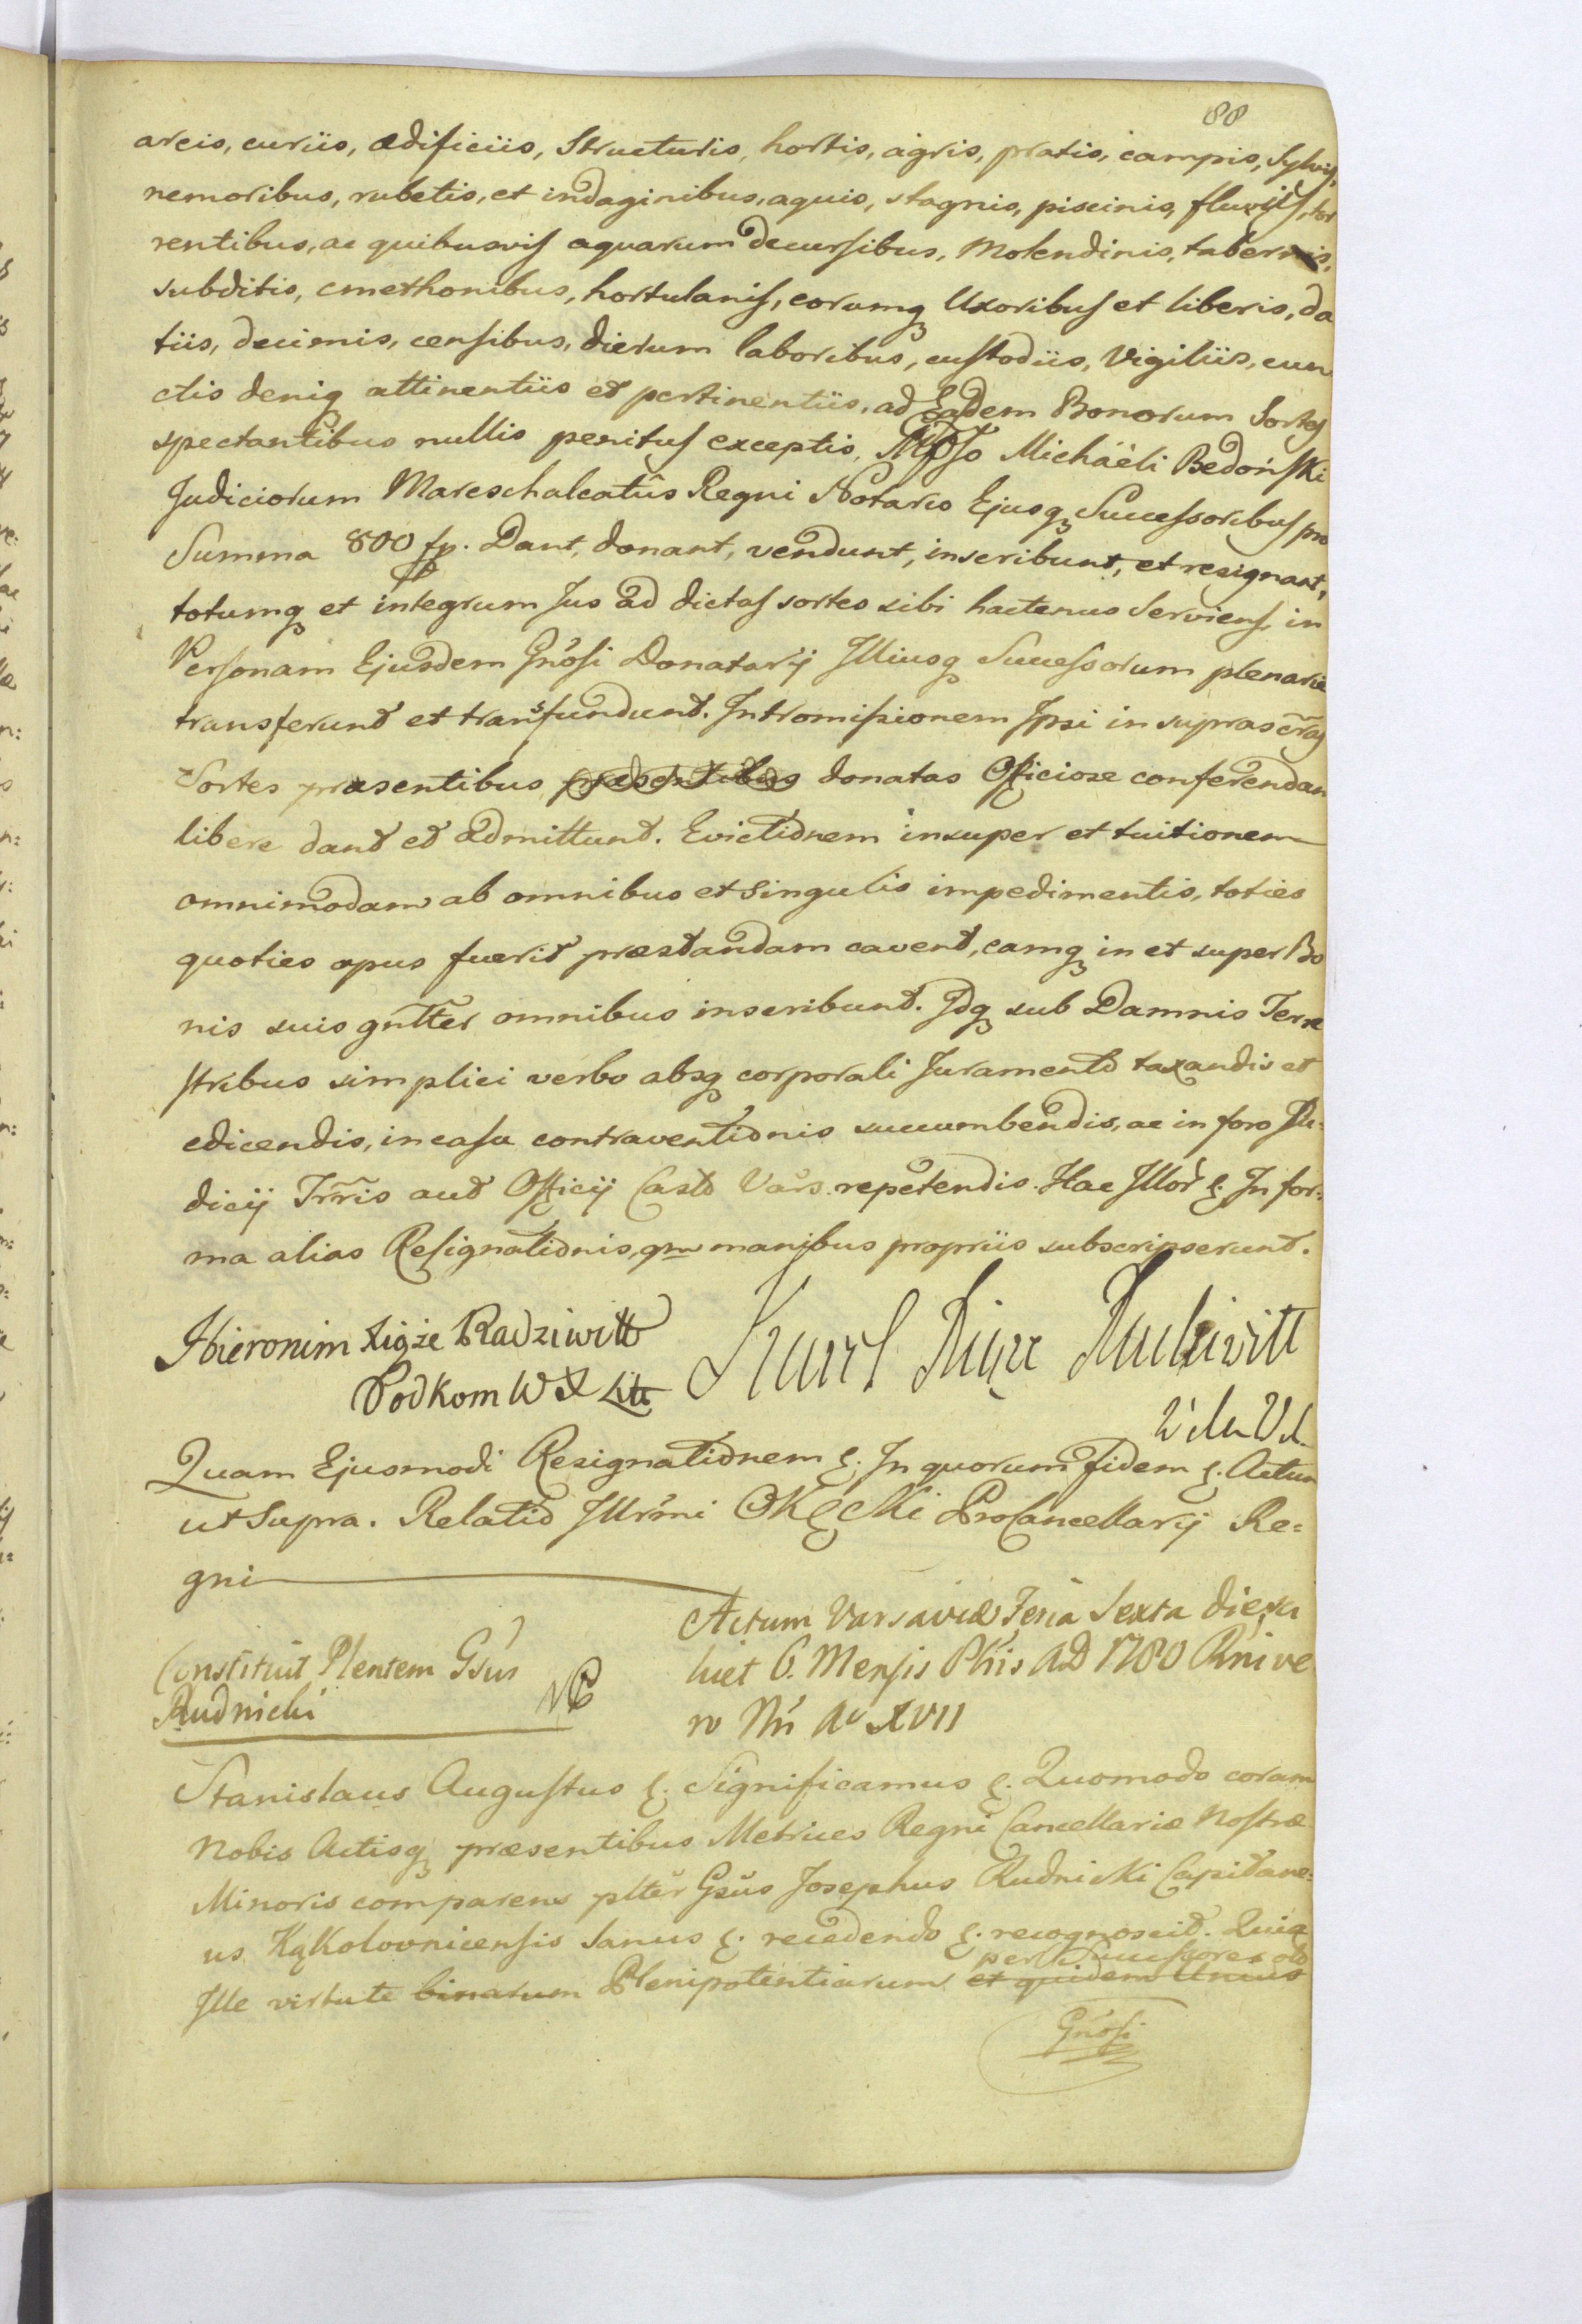 88
areis, curiis, ædificiis, Structuris, hortis, agris, pratis, campis, Sylvis,
nemoribus, rubetis, et indaginibus, aquis, stagnis, piscinis, fluvijs, tor
rentibus, ac quibusvis aquarum decursibus, Molendinis, tabernis,
subditis, cmethonibus, hortulanis, eorumq Uxoribus et liberis, da
tiis, decimis, censibus, dierum laboribus, custodiis, Vigiliis, cun
ctis deniq attinentiis et pertinentiis, ad Eadem Bonorum Sortes
spectantibus nullis penitus exceptis, Michaëli Bedoński
Judiciorum Mareschalcatûs Regni Notario Ejusq Successoribus pro
Summa 800 fp. Dant, donant, vendunt, inscribunt, et resignant,
totumq et integrum Jus ad dictas sortes sibi hactenus Serviens, in
Personam Ejusdem Gnosi Donatarij Illiusq Successorum plenarie
transferunt et transfundunt. Intromissionem Ipsi in suprascras
Sortes præsentibus præsentibus donatas Officiose conferendam
libere dant et admittunt. Evictionem insuper et tuitionem
omnimodam ab omnibus et Singulis impedimentis, toties
quoties opus fuerit præstandam cavent, eamq in et super Bo
nis suis gnlter omnibus inscribunt. Idq sub Damnis Terre
stribus simplici verbo absq corporali Juramento taxandis et
edicendis, in casu contraventionis succumbendis, ac in foro Ju-
dicij Trris aut Officij Castr Vars. repetendis. Hac Illor &. In for-
ma alias Resignationis, qm manibus propriis subscripserunt.
Hieronim Xiąże Radziwiłł
Podkom W X Litt
Karol Xiąże Radziwiłł
Quam Ejusmodi Resignationem &. In quorum fidem &. Actum
ut Supra. Relatio Illrmi Okęcki ProCancellarij Re=
gni
Actum Varsaviæ Feria Sexta die
Constituit Plentem Gsus
Rudnicki
6. Mensis 8bris AD 1780 Rni ve
ro Nri Ao XVII
Stanislaus Augustus &. Significamus &. Quomodo coram
Nobis Actisq præsentibus Metrices Regni Cancellariæ Nostræ
Minoris comparens plter Gsus Josephus Rudnicki Capitane=
us Kąkolovnicensis Sanus &. recedendo &. recognoscit. Quia
per Successores olo
Ille virtute binarum Plenipotentiarum et quidem Unius
Gnosi